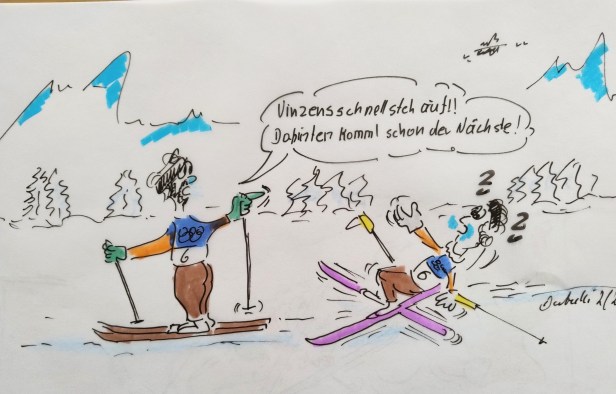 Vinzens schnell steh auf!!
Dahinten kommt schon der Nächste!
6
6